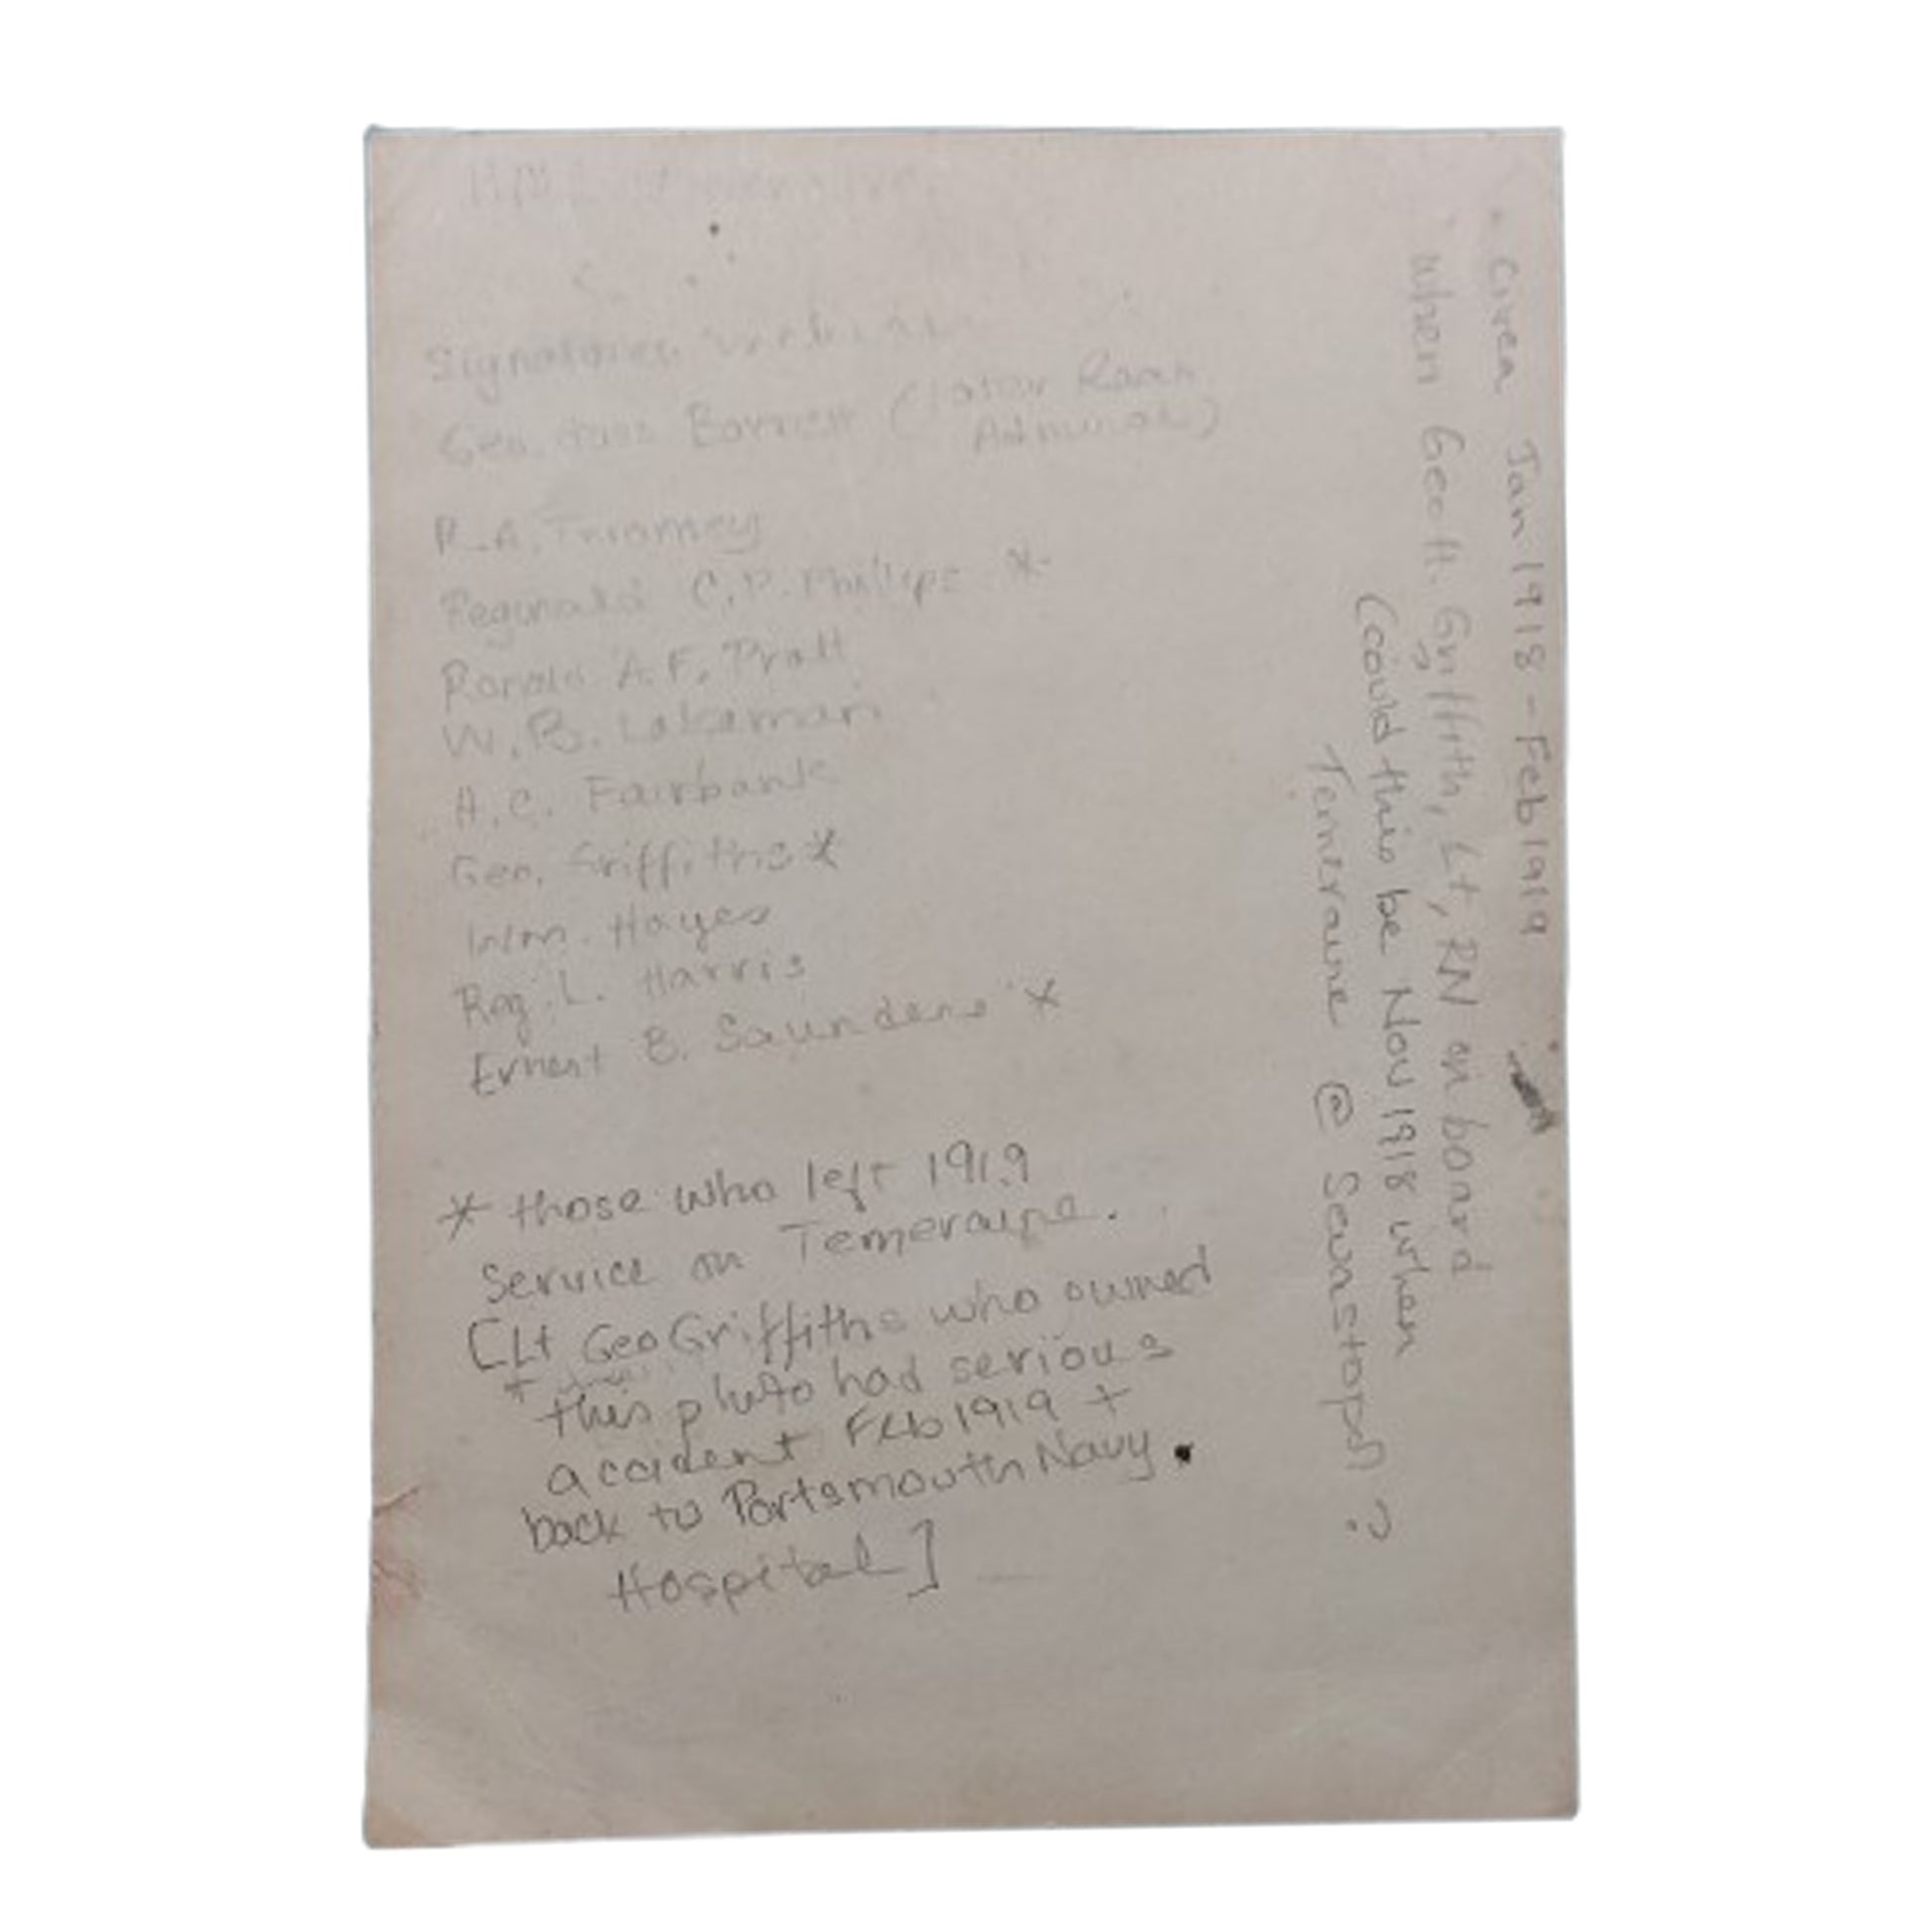 HMS Temeraire
Signatures
Geo. Barrett (later Rear
Admiral)
R.A.
Reginald C.P. Phillips *
Ronald A.F. Pratt
W.B. Lakeman
A.C. Fairbank
Geo. Griffiths *
Wm. Hayes
Reg. L. Harris
Ernest B. Saunders *
* those who left 1919
service on Temeraire.
[Lt Geo Griffiths who owned
this photo had serious
accident Feb 1919 +
back to Portsmouth Navy.
Hospital]
Circa Jan 1918 - Feb 1919
when Geo H. Griffith, Lt, RN on board
(could this be Nov 1918 when
Temeraire @ Sevastopol?